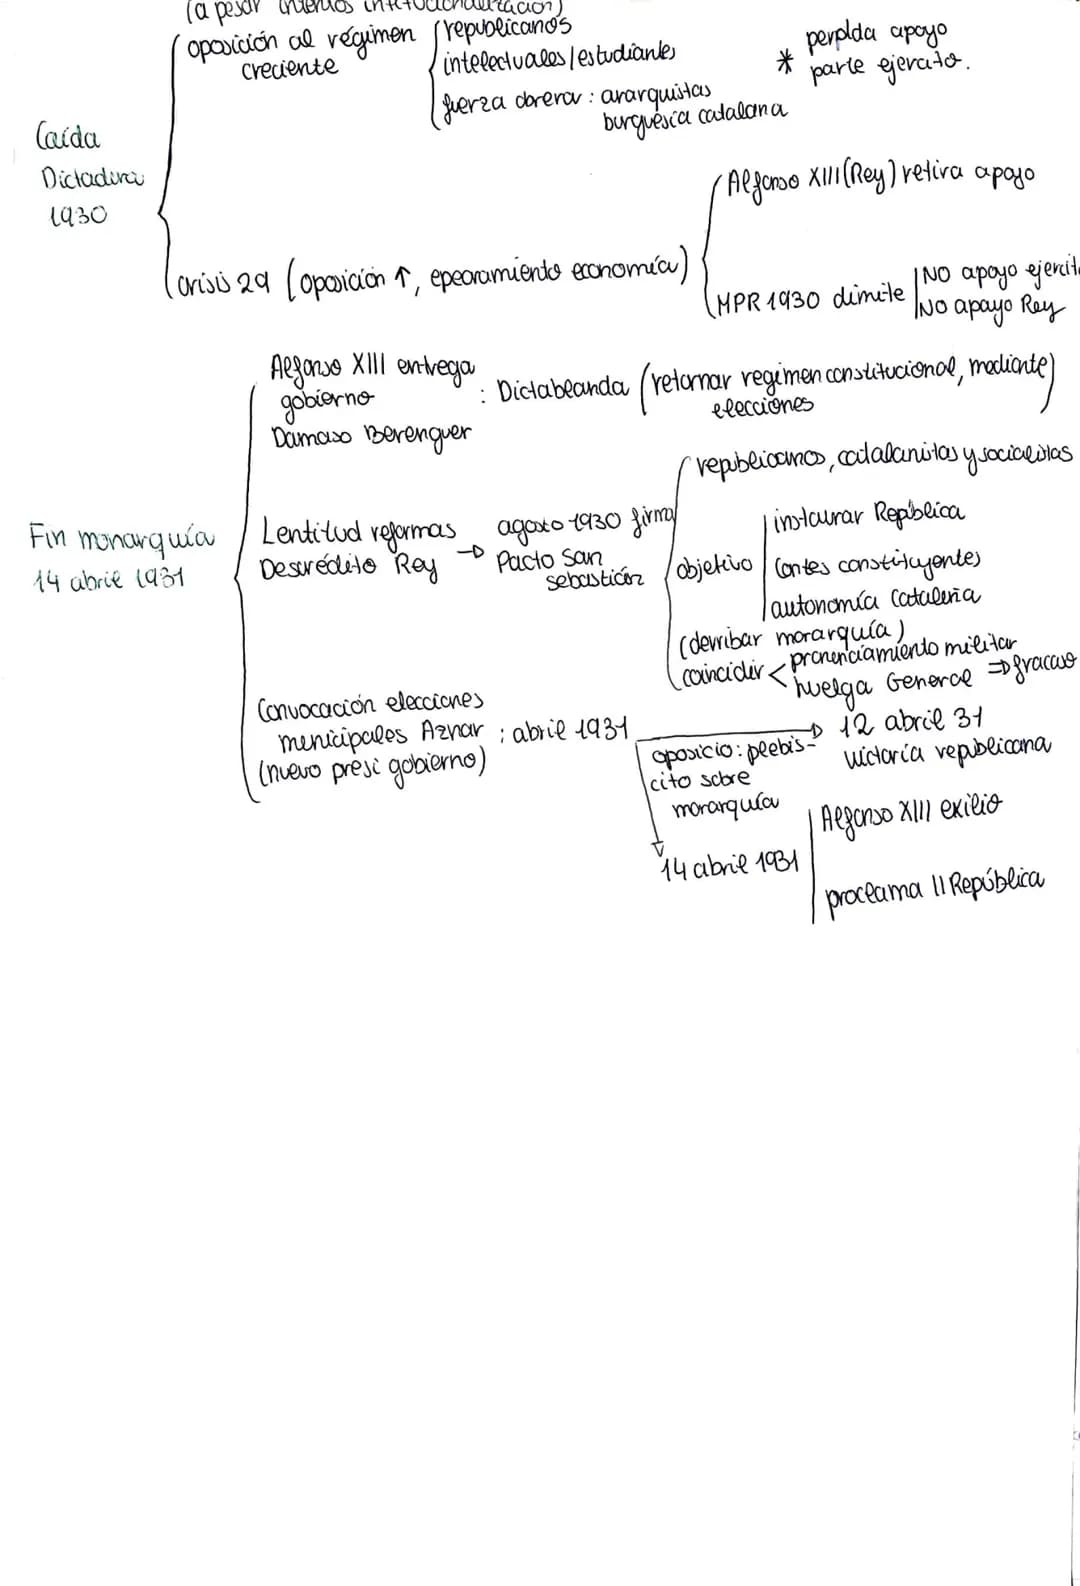 (a pesar intentos institucionalización)
oposición al régimen
creciente
republicanos
intelectuales/estudiantes
fuerza obrera : anarquistas
burguesía catalana
* perdida apoyo
parte ejercito.
Caída
Dictadura
1930
crisis 29 (oposición ↑, epeoramiento economía)
Alfonso XIII (Rey) retira apoyo
MPR 1930 dimite
NO apoyo ejercit
NO apoyo Rey
Fin monarquía
14 abril 1931
Alfonso XIII entrega
gobierno
Damaso Berenguer
: Dictablanda (retornar regimen constitucional, mediante)
elecciones
Lentitud reformas
Desurédito Rey
→ agosto 1930 firma
Pacto San
sebastián
republicanos, catalanistas y socialistas
objetivo
instaurar República
Cortes constituyentes)
autonomía Cataluña
(derribar monarquía)
coincidir < pronunciamiento militar
huelga General ⇒ fracaso
Convocación elecciones
municipales Aznar : abril 1931
(nuevo presi gobierno)
oposicio: plebis-
cito sobre
monarquía
→ 12 abril 31
victoria republicana
14 abril 1931
Alfonso XIII exilio
proclama II República